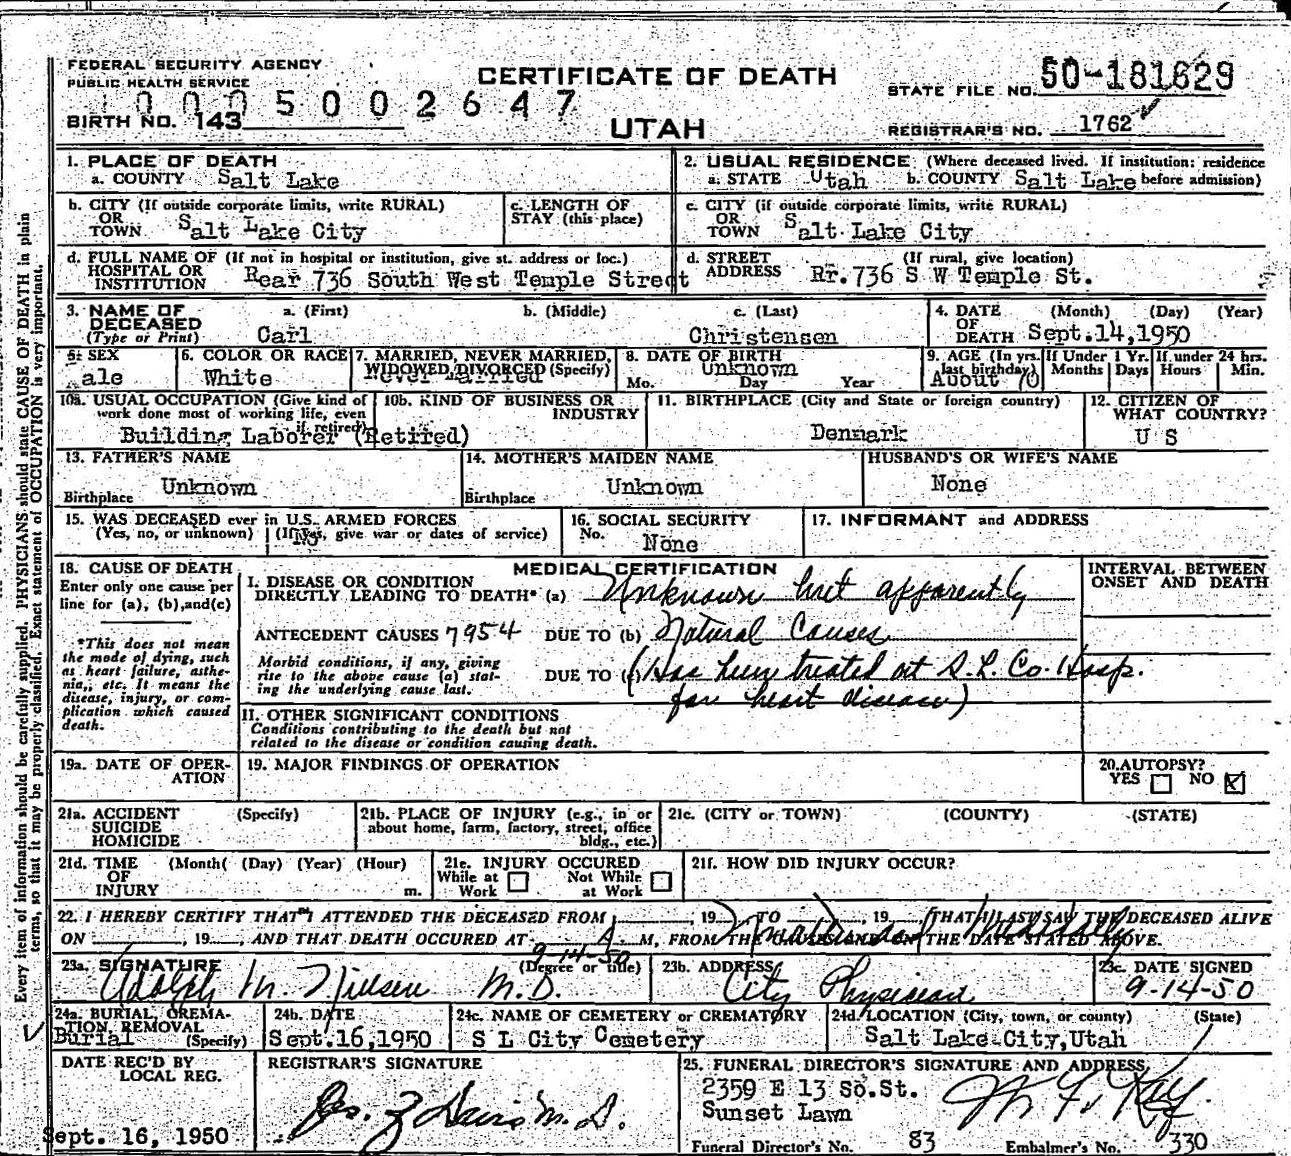 FEDERAL SECURITY AGENCY
PUBLIC HEALTH SERVICE
CERTIFICATE OF DEATH
STATE FILE NO. 50-181629
1000 5002647
BIRTH NO. 143
UTAH
REGISTRAR'S NO. 1762
1. PLACE OF DEATH
a. COUNTY Salt Lake
2. USUAL RESIDENCE (Where deceased lived. If institution: residence before admission)
a. STATE Utah b. COUNTY Salt Lake
b. CITY (If outside corporate limits, write RURAL)
OR TOWN Salt Lake City
c. LENGTH OF STAY (this place)
c. CITY (if outside corporate limits, write RURAL)
OR TOWN Salt Lake City
d. FULL NAME OF (If not in hospital or institution, give st. address or loc.)
HOSPITAL OR INSTITUTION Rear 736 South West Temple Street
d. STREET ADDRESS (If rural, give location)
Rr. 736 S W Temple St.
3. NAME OF DECEASED (Type or Print)
a. (First) b. (Middle) c. (Last)
Carl Christensen
4. DATE OF DEATH (Month) (Day) (Year)
Sept.14,1950
5. SEX
ale
6. COLOR OR RACE
White
7. MARRIED, NEVER MARRIED, WIDOWED, DIVORCED (Specify)
Never Married
8. DATE OF BIRTH
Unknown
Mo. Day Year
9. AGE (In yrs. last birthday)
About 70
If Under 1 Yr. Months Days
If under 24 hrs. Hours Min.
10a. USUAL OCCUPATION (Give kind of work done most of working life, even if retired)
Building Laborer (Retired)
10b. KIND OF BUSINESS OR INDUSTRY
11. BIRTHPLACE (City and State or foreign country)
Denmark
12. CITIZEN OF WHAT COUNTRY?
U S
13. FATHER'S NAME
Unknown
Birthplace
14. MOTHER'S MAIDEN NAME
Unknown
Birthplace
HUSBAND'S OR WIFE'S NAME
None
15. WAS DECEASED ever in U.S. ARMED FORCES
(Yes, no, or unknown) (If yes, give war or dates of service)
No
16. SOCIAL SECURITY No.
None
17. INFORMANT and ADDRESS
18. CAUSE OF DEATH
Enter only one cause per line for (a), (b), and (c)
*This does not mean the mode of dying, such as heart failure, asthenia, etc. It means the disease, injury, or complication which caused death.
MEDICAL CERTIFICATION
INTERVAL BETWEEN ONSET AND DEATH
I. DISEASE OR CONDITION DIRECTLY LEADING TO DEATH* (a) Unknown but apparently
ANTECEDENT CAUSES 7954 DUE TO (b) Natural Causes
Morbid conditions, if any, giving rise to the above cause (a) stating the underlying cause last.
DUE TO (c) (has been treated at S.L. Co. Hosp.
for heart disease)
II. OTHER SIGNIFICANT CONDITIONS
Conditions contributing to the death but not related to the disease or condition causing death.
19a. DATE OF OPERATION
19. MAJOR FINDINGS OF OPERATION
20. AUTOPSY?
YES NO X
21a. ACCIDENT SUICIDE HOMICIDE (Specify)
21b. PLACE OF INJURY (e.g., in or about home, farm, factory, street, office bldg., etc.)
21c. (CITY or TOWN) (COUNTY) (STATE)
21d. TIME OF INJURY (Month) (Day) (Year) (Hour) m.
21e. INJURY OCCURED
While at Work Not While at Work
21f. HOW DID INJURY OCCUR?
22. I HEREBY CERTIFY THAT I ATTENDED THE DECEASED FROM , 19 TO , 19 , (THAT I LAST SAW THE DECEASED ALIVE
ON , 19 , AND THAT DEATH OCCURED AT A M, FROM THE CAUSES AND ON THE DATE STATED ABOVE.
9-14-50
23a. SIGNATURE (Degree or title)
Adolph M. Nielsen M.D.
23b. ADDRESS
City Physician
23c. DATE SIGNED
9-14-50
24a. BURIAL, CREMATION, REMOVAL (Specify)
Burial
24b. DATE
Sept.16,1950
24c. NAME OF CEMETERY or CREMATORY
S L City Cemetery
24d. LOCATION (City, town, or county) (State)
Salt Lake City, Utah
DATE REC'D BY LOCAL REG.
Sept. 16, 1950
REGISTRAR'S SIGNATURE
25. FUNERAL DIRECTOR'S SIGNATURE AND ADDRESS
2359 E 13 So. St.
Sunset Lawn
Funeral Director's No. 83 Embalmer's No. 330
Every item of information should be carefully supplied. PHYSICIANS should state CAUSE OF DEATH in plain
terms, so that it may be properly classified. Exact statement of OCCUPATION is very important.